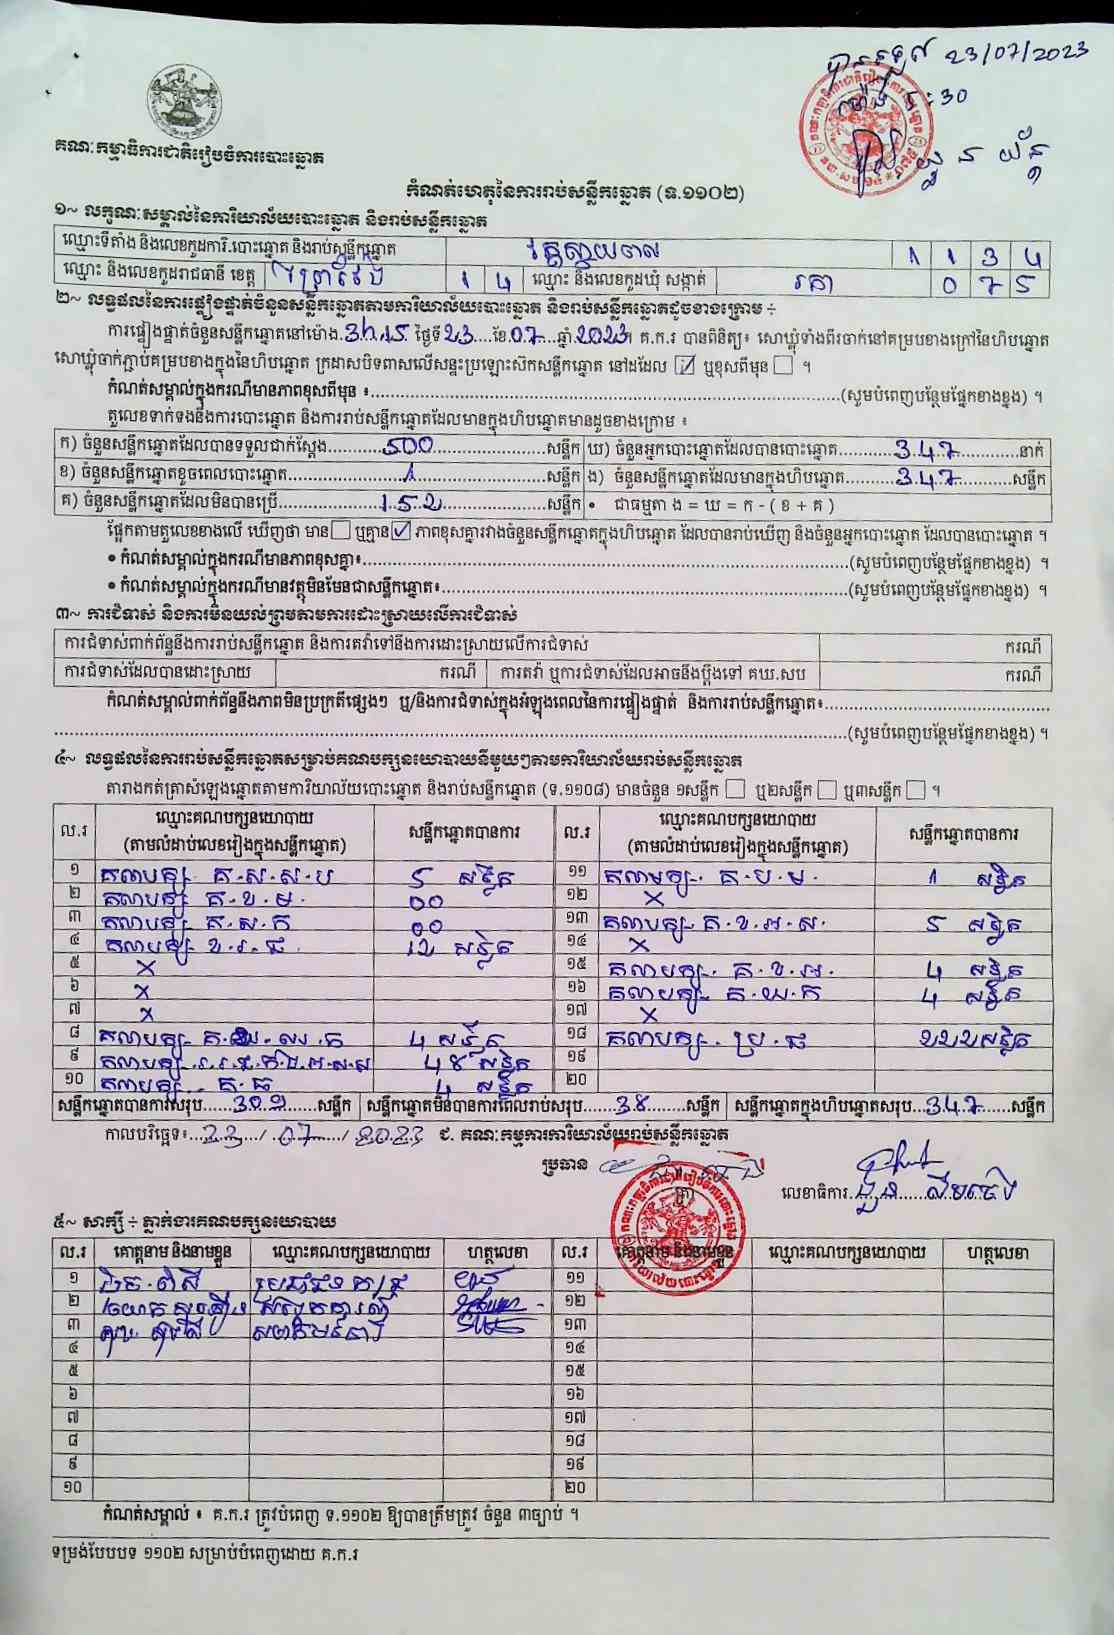 បានទទួល 23/07/2023
ម៉ោង :30
គណៈកម្មាធិការជាតិរៀបចំការបោះឆ្នោត
កំណត់ហេតុនៃការរាប់សន្លឹកឆ្នោត (ទ.១១០២)
១~ លក្ខណៈសម្គាល់នៃការិយាល័យបោះឆ្នោត និងរាប់សន្លឹកឆ្នោត
ឈ្មោះទីតាំង និងលេខកូដការិ.បោះឆ្នោត និងរាប់សន្លឹកឆ្នោត 1 1 3 4
ឈ្មោះ និងលេខកូដរាជធានី ខេត្ត ព្រៃវែង 1 4 ឈ្មោះ និងលេខកូដឃុំ សង្កាត់ រកា 0 7 5
២~ លទ្ធផលនៃការផ្ទៀងផ្ទាត់ចំនួនសន្លឹកឆ្នោតតាមការិយាល័យបោះឆ្នោត និងរាប់សន្លឹកឆ្នោតដូចខាងក្រោម ÷
ការផ្ទៀងផ្ទាត់ចំនួនសន្លឹកឆ្នោតនៅម៉ោង 3h15 ថ្ងៃទី 23 ខែ 07 ឆ្នាំ 2023។ គ.ក.រ បានពិនិត្យ៖ សោឃ្លុំទាំងពីរចាក់នៅគម្របខាងក្រៅនៃហិបឆ្នោត
សោឃ្លុំចាក់ភ្ជាប់គម្របខាងក្នុងនៃហិបឆ្នោត ក្រដាសបិទពាសលើសន្ទះប្រឡោះស៊កសន្លឹកឆ្នោត នៅដដែល ☑ ឬខុសពីមុន ☐ ។
កំណត់សម្គាល់ក្នុងករណីមានភាពខុសពីមុន ៖ (សូមបំពេញបន្ថែមផ្នែកខាងខ្នង) ។
តួលេខទាក់ទងនឹងការបោះឆ្នោត និងការរាប់សន្លឹកឆ្នោតដែលមានក្នុងហិបឆ្នោតមានដូចខាងក្រោម ៖
ក) ចំនួនសន្លឹកឆ្នោតដែលបានទទួលជាក់ស្តែង 500 សន្លឹក ឃ) ចំនួនអ្នកបោះឆ្នោតដែលបានបោះឆ្នោត 347 នាក់
ខ) ចំនួនសន្លឹកឆ្នោតខូចពេលបោះឆ្នោត 1 សន្លឹក ង) ចំនួនសន្លឹកឆ្នោតដែលមានក្នុងហិបឆ្នោត 347 សន្លឹក
គ) ចំនួនសន្លឹកឆ្នោតដែលមិនបានប្រើ 152 សន្លឹក • ជាធម្មតា ង = ឃ = ក - ( ខ + គ )
ផ្អែកតាមតួលេខខាងលើ ឃើញថា មាន ☐ ឬគ្មាន ☑ ភាពខុសគ្នារវាងចំនួនសន្លឹកឆ្នោតក្នុងហិបឆ្នោត ដែលបានរាប់ឃើញ និងចំនួនអ្នកបោះឆ្នោត ដែលបានបោះឆ្នោត ។
• កំណត់សម្គាល់ក្នុងករណីមានភាពខុសគ្នា៖ (សូមបំពេញបន្ថែមផ្នែកខាងខ្នង) ។
• កំណត់សម្គាល់ក្នុងករណីមានវត្ថុមិនមែនជាសន្លឹកឆ្នោត៖ (សូមបំពេញបន្ថែមផ្នែកខាងខ្នង) ។
៣~ ការជំទាស់ និងការមិនយល់ព្រមតាមការដោះស្រាយលើការជំទាស់
ការជំទាស់ពាក់ព័ន្ធនឹងការរាប់សន្លឹកឆ្នោត និងការតវ៉ាទៅនឹងការដោះស្រាយលើការជំទាស់ ករណី
ការជំទាស់ដែលបានដោះស្រាយ ករណី ការតវ៉ា ឬការជំទាស់ដែលអាចនឹងប្តឹងទៅ គឃ.សប ករណី
កំណត់សម្គាល់ពាក់ព័ន្ធនឹងភាពមិនប្រក្រតីផ្សេងៗ ឬ/និងការជំទាស់ក្នុងអំឡុងពេលនៃការផ្ទៀងផ្ទាត់ និងការរាប់សន្លឹកឆ្នោត៖
(សូមបំពេញបន្ថែមផ្នែកខាងខ្នង) ។
៤~ លទ្ធផលនៃការរាប់សន្លឹកឆ្នោតសម្រាប់គណបក្សនយោបាយនីមួយៗតាមការិយាល័យរាប់សន្លឹកឆ្នោត
តារាងកត់ត្រាសំឡេងឆ្នោតតាមការិយាល័យបោះឆ្នោត និងរាប់សន្លឹកឆ្នោត (ទ.១១០៨) មានចំនួន ១សន្លឹក ☐ ឬ២សន្លឹក ☐ ឬ៣សន្លឹក ☐ ។
ល.រ ឈ្មោះគណបក្សនយោបាយ (តាមលំដាប់លេខរៀងក្នុងសន្លឹកឆ្នោត) សន្លឹកឆ្នោតបានការ ល.រ ឈ្មោះគណបក្សនយោបាយ (តាមលំដាប់លេខរៀងក្នុងសន្លឹកឆ្នោត) សន្លឹកឆ្នោតបានការ
១ គណបក្ស គ.ស.ស.ប 5 សន្លឹក ១១ គណបក្ស គ.ប.ម. 1 សន្លឹក
២ គណបក្ស គ.ខ.ម. 00 ១២ x
៣ គណបក្ស គ.ស.ក 00 ១៣ គណបក្ស គ.ខ.អ.ស. 5 សន្លឹក
៤ គណបក្ស ខ.រ.ជ. 12 សន្លឹក ១៤ x
៥ x ១៥ គណបក្ស គ.ខ.អ. 4 សន្លឹក
៦ x ១៦ គណបក្ស គ.យ.ក 4 សន្លឹក
៧ x ១៧ x
៨ គណបក្ស 4 សន្លឹក ១៨ គណបក្ស ប្រ.ជ 222 សន្លឹក
៩ គណបក្ស 48 សន្លឹក ១៩
១០ គណបក្ស គ.ធ 4 សន្លឹក ២០
សន្លឹកឆ្នោតបានការសរុប 309 សន្លឹក សន្លឹកឆ្នោតមិនបានការពេលរាប់សរុប 38 សន្លឹក សន្លឹកឆ្នោតក្នុងហិបឆ្នោតសរុប 347 សន្លឹក
កាលបរិច្ឆេទ៖ 23 / 07 / 2023 ជ. គណៈកម្មការការិយាល័យរាប់សន្លឹកឆ្នោត
ប្រធាន
លេខាធិការ
៥~ សាក្សី ÷ ភ្នាក់ងារគណបក្សនយោបាយ
ល.រ គោត្តនាម និងនាមខ្លួន ឈ្មោះគណបក្សនយោបាយ ហត្ថលេខា ល.រ គោត្តនាម និងនាមខ្លួន ឈ្មោះគណបក្សនយោបាយ ហត្ថលេខា
១ ១១
២ ១២
៣ ១៣
៤ ១៤
៥ ១៥
៦ ១៦
៧ ១៧
៨ ១៨
៩ ១៩
១០ ២០
កំណត់សម្គាល់ ៖ គ.ក.រ ត្រូវបំពេញ ទ.១១០២ ឱ្យបានត្រឹមត្រូវ ចំនួន ៣ច្បាប់ ។
ទម្រង់បែបបទ ១១០២ សម្រាប់បំពេញដោយ គ.ក.រ